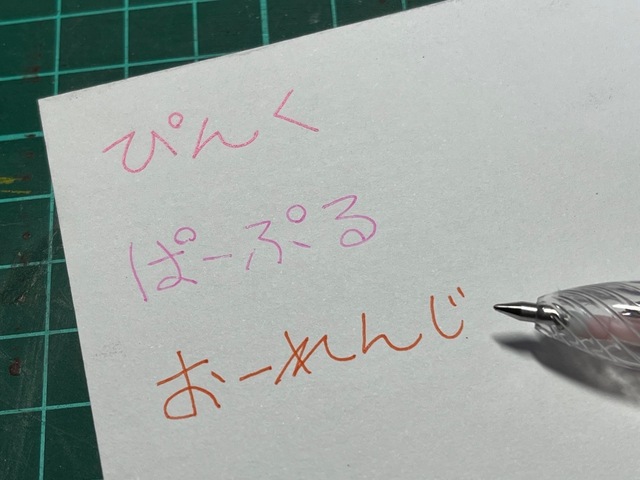 ぴんく
ぱーぷる
おーれんじ